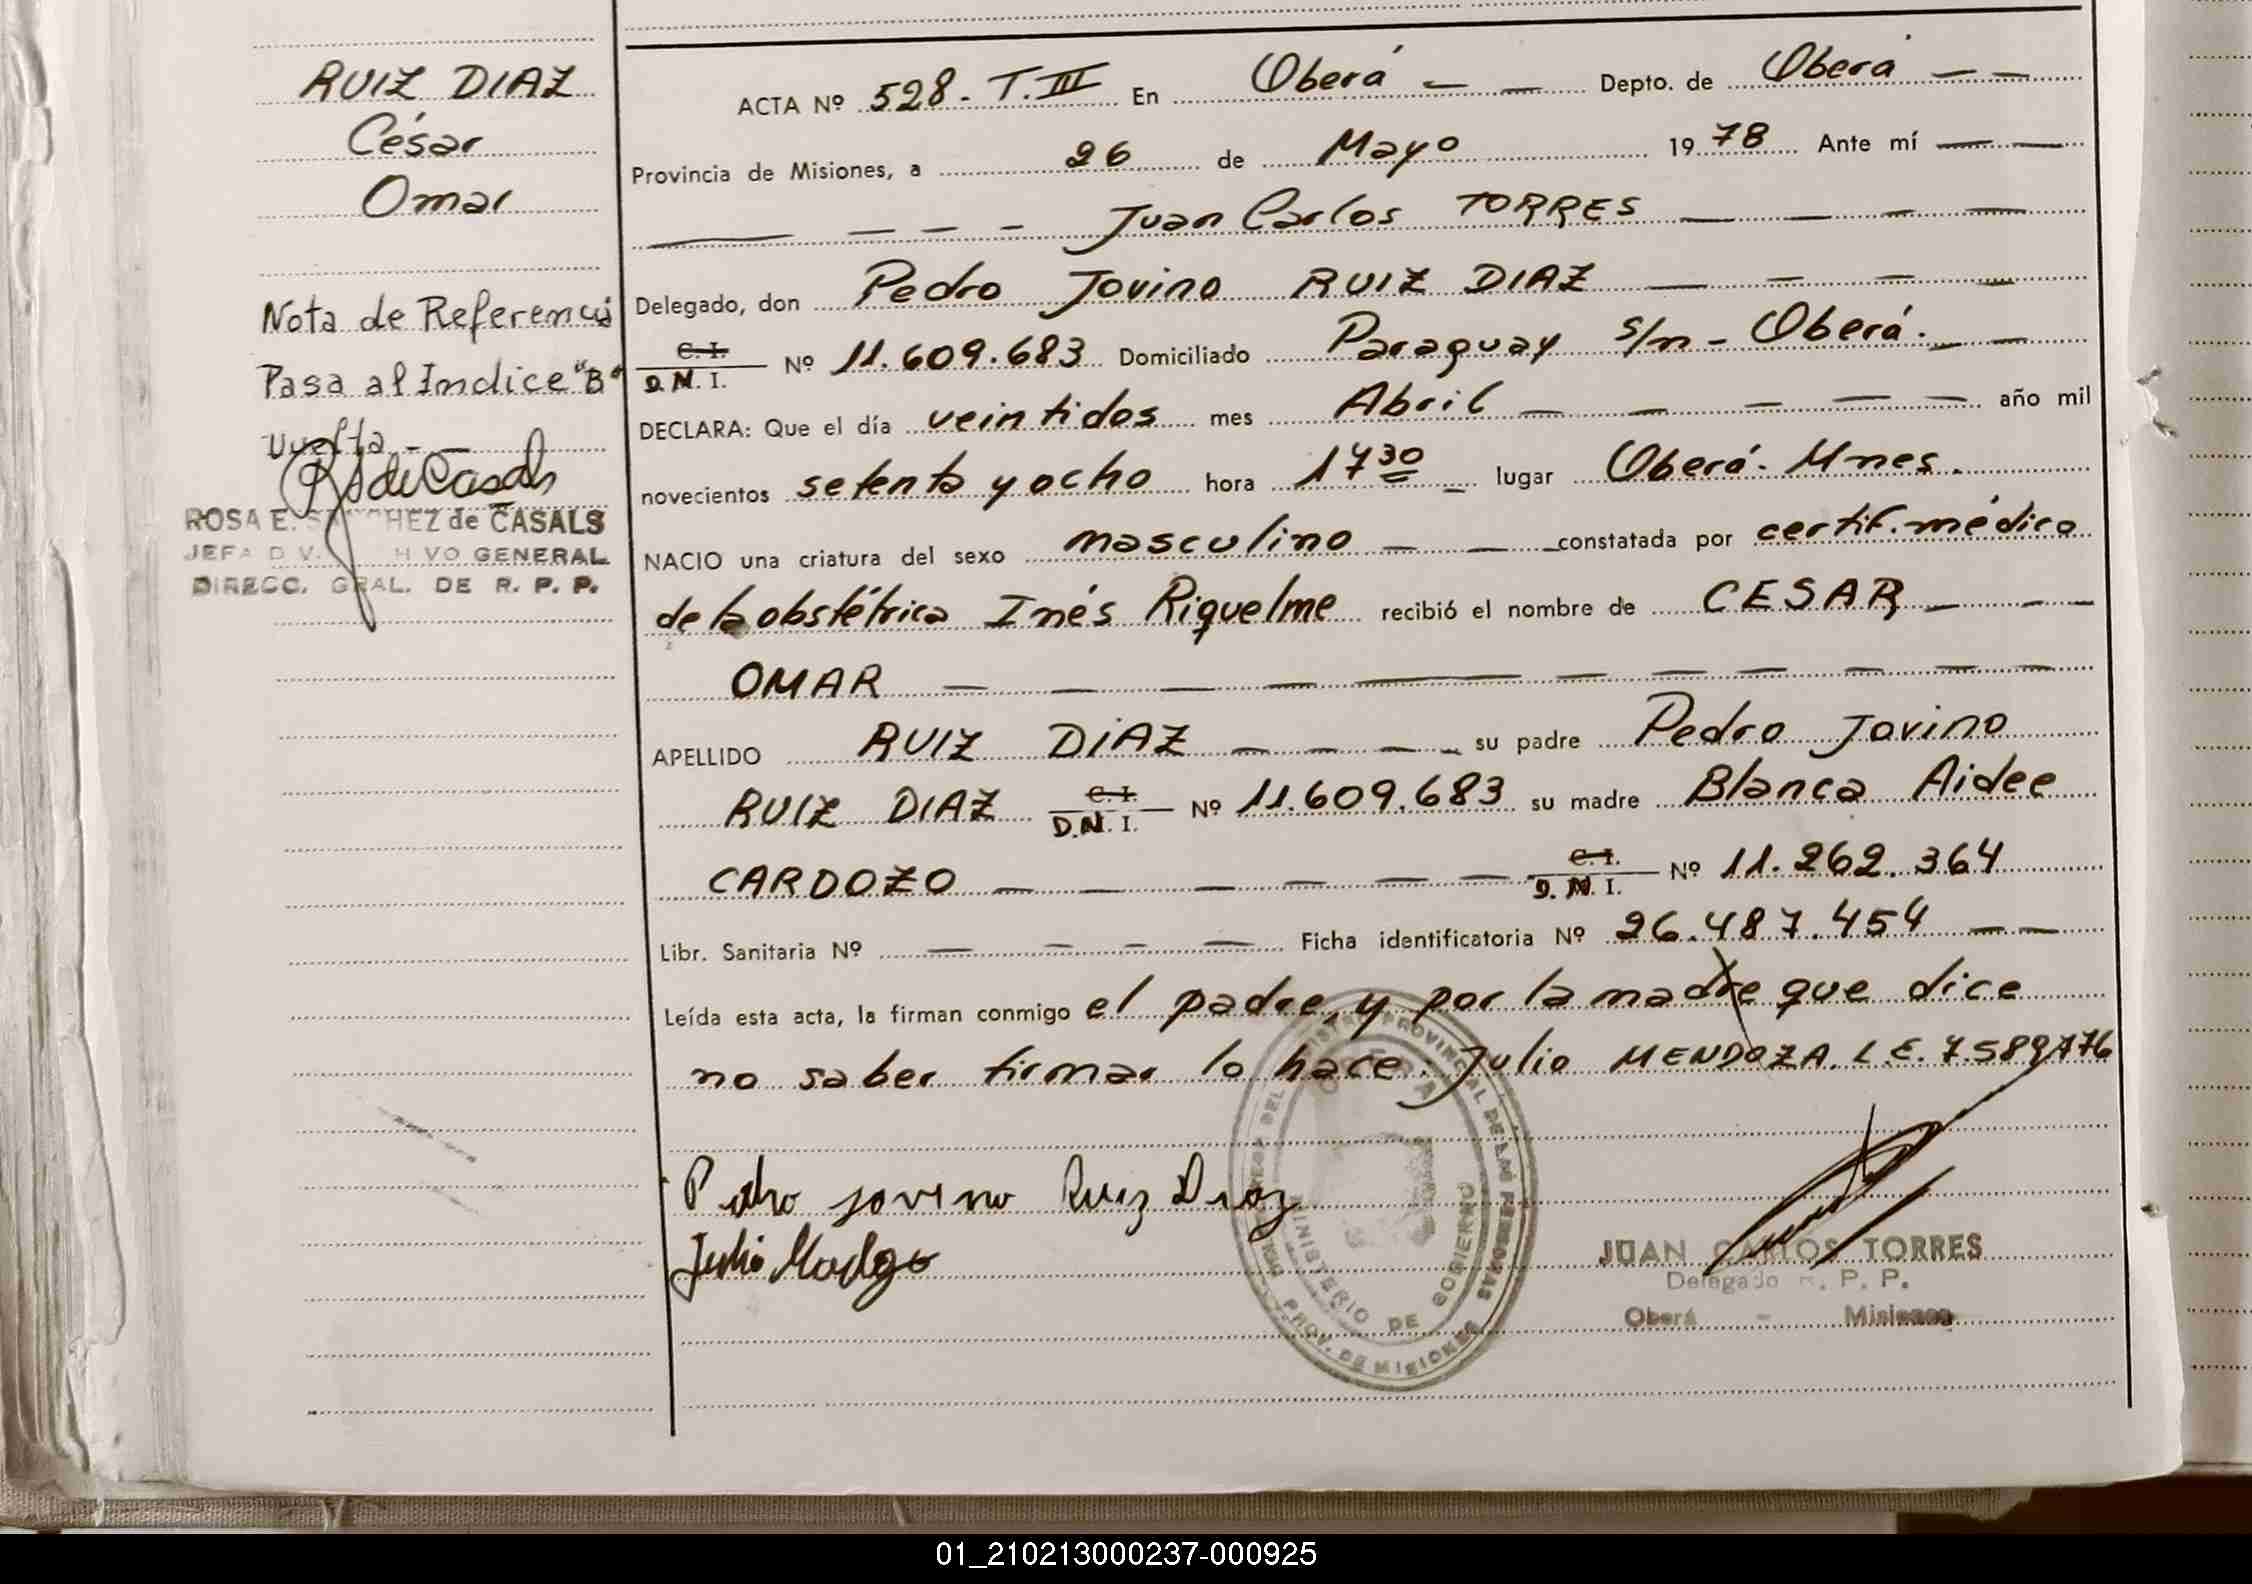 RUIZ DIAZ
César
Omar
Nota de Referencia
Pasa al Indice "B"
vuelta
ROSA E. SANCHEZ de CASALS
JEFA DIV. ARCHIVO GENERAL
DIRECC. GRAL. DE R. P. P.
ACTA Nº 528 - T. III En Oberá Depto. de Oberá
Provincia de Misiones, a 26 de Mayo 1978 Ante mí
Juan Carlos TORRES
Delegado, don Pedro Jovino RUIZ DIAZ
C. I. D. N. I. Nº 11.609.683 Domiciliado Paraguay s/n - Oberá.
DECLARA: Que el día veintidos mes Abril año mil
novecientos setenta y ocho hora 17 30 lugar Oberá. Mnes.
NACIO una criatura del sexo masculino constatada por certif. médico
de la obstétrica Inés Riquelme recibió el nombre de CESAR
OMAR
APELLIDO RUIZ DIAZ su padre Pedro Jovino
RUIZ DIAZ C. I. D. N. I. Nº 11.609.683 su madre Blanca Aidee
CARDOZO C. I. D. N. I. Nº 11.262.364
Libr. Sanitaria Nº Ficha identificatoria Nº 26.487.454
Leída esta acta, la firman conmigo el padre, y por la madre que dice
no saber firmar lo hace: Julio MENDOZA. L.E. 7.589.776
Pedro Jovino Ruiz Diaz
Julio
JUAN CARLOS TORRES
Delegado R. P. P.
Oberá - Misiones
REGISTRO PROVINCIAL DE LAS PERSONAS
MINISTERIO DE GOBIERNO
PROV. DE MISIONES
01_210213000237-000925